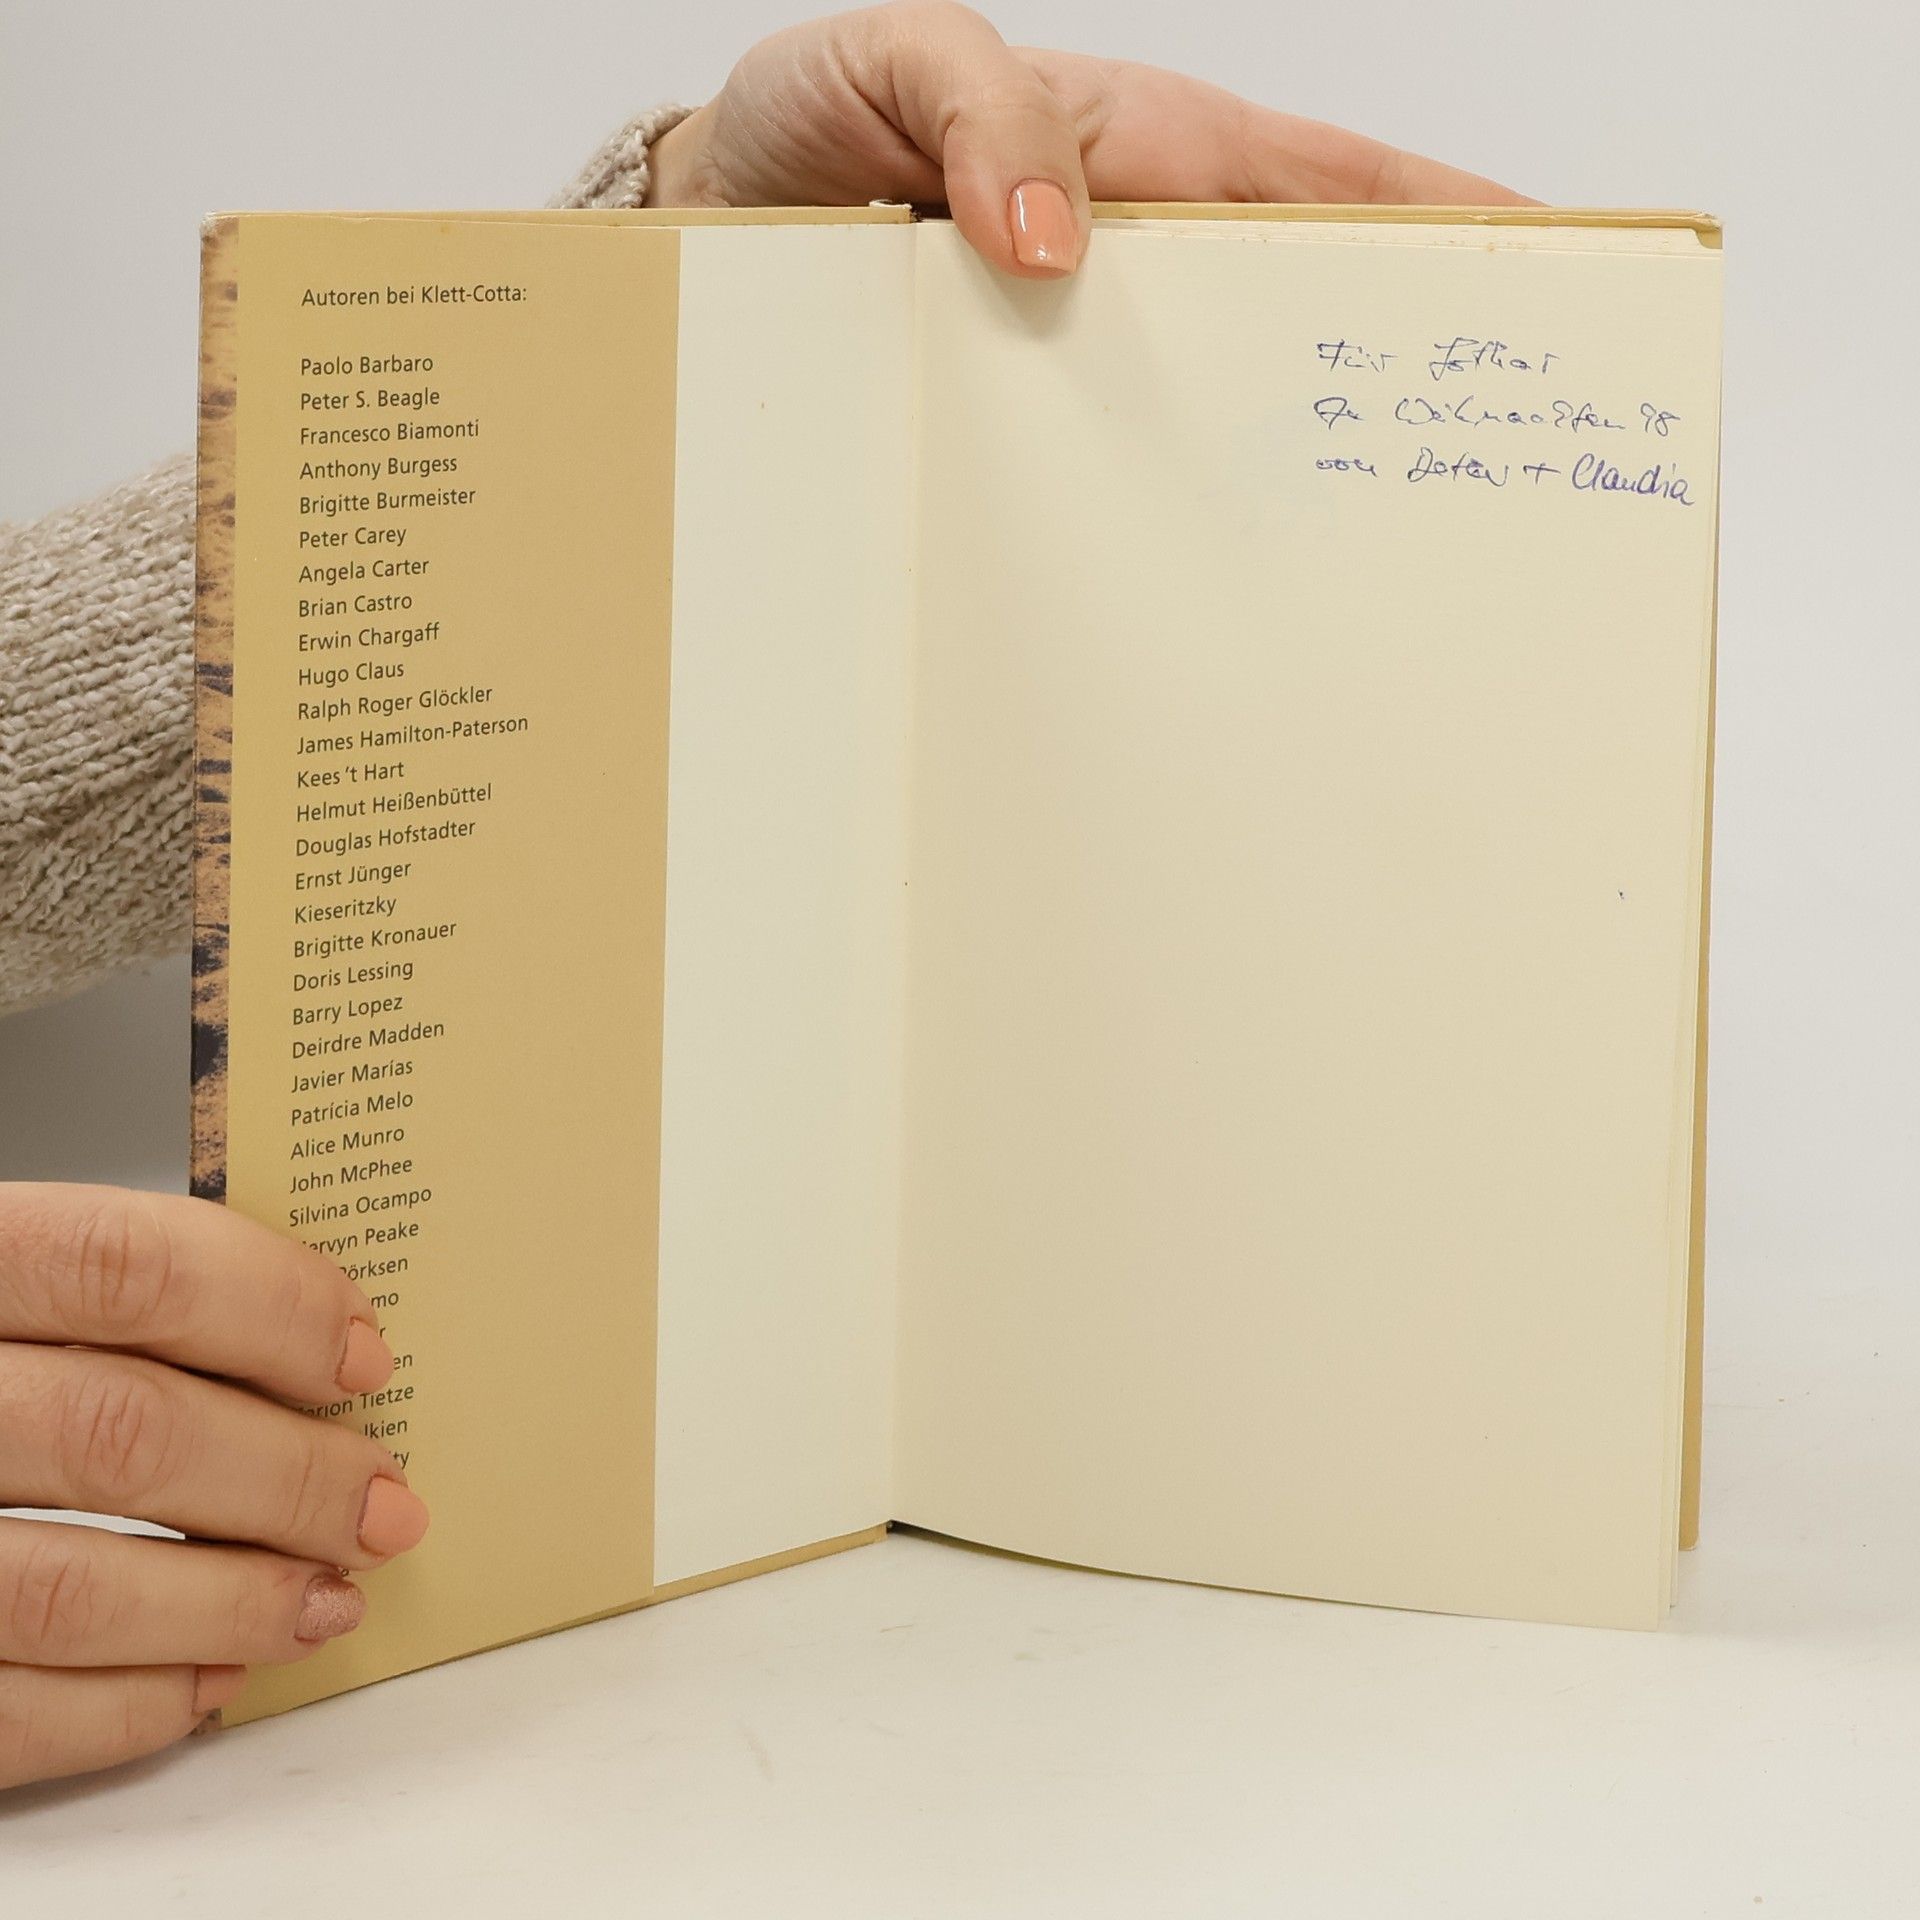 Autoren bei Klett-Cotta:
Paolo Barbaro
Peter S. Beagle
Francesco Biamonti
Anthony Burgess
Brigitte Burmeister
Peter Carey
Angela Carter
Brian Castro
Erwin Chargaff
Hugo Claus
Ralph Roger Glöckler
James Hamilton-Paterson
Kees 't Hart
Helmut Heißenbüttel
Douglas Hofstadter
Ernst Jünger
Kieseritzky
Brigitte Kronauer
Doris Lessing
Barry Lopez
Deirdre Madden
Javier Marías
Patrícia Melo
Alice Munro
John McPhee
Silvina Ocampo
ervyn Peake
örksen
mo
r
en
arion Tietze
lkien
ty
Für Lothar
Zu Weihnachten 98
von Detlev + Claudia